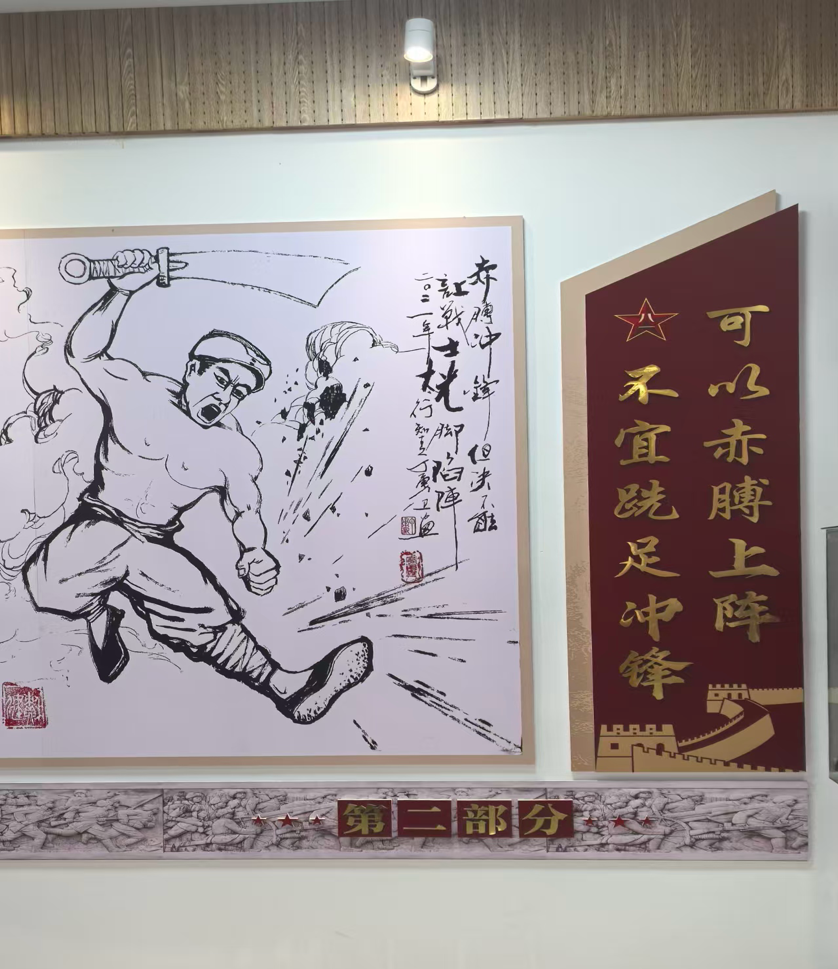 赤膊冲锋但决不能
让战士光脚陷阵
二〇二一年
可以赤膊上阵
不宜跣足冲锋
八一
第二部分